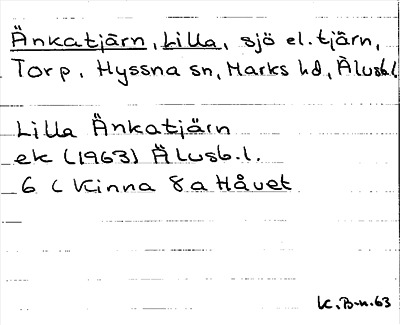 Änkatjärn, Lilla, sjö el. tjärn,
Torp, Hyssna sn, Marks hd, Älvsb.l.
Lilla Änkatjärn
ek (1963) Älvsb.l.
6 C Kinna 8a Håvet
K.B-n.63